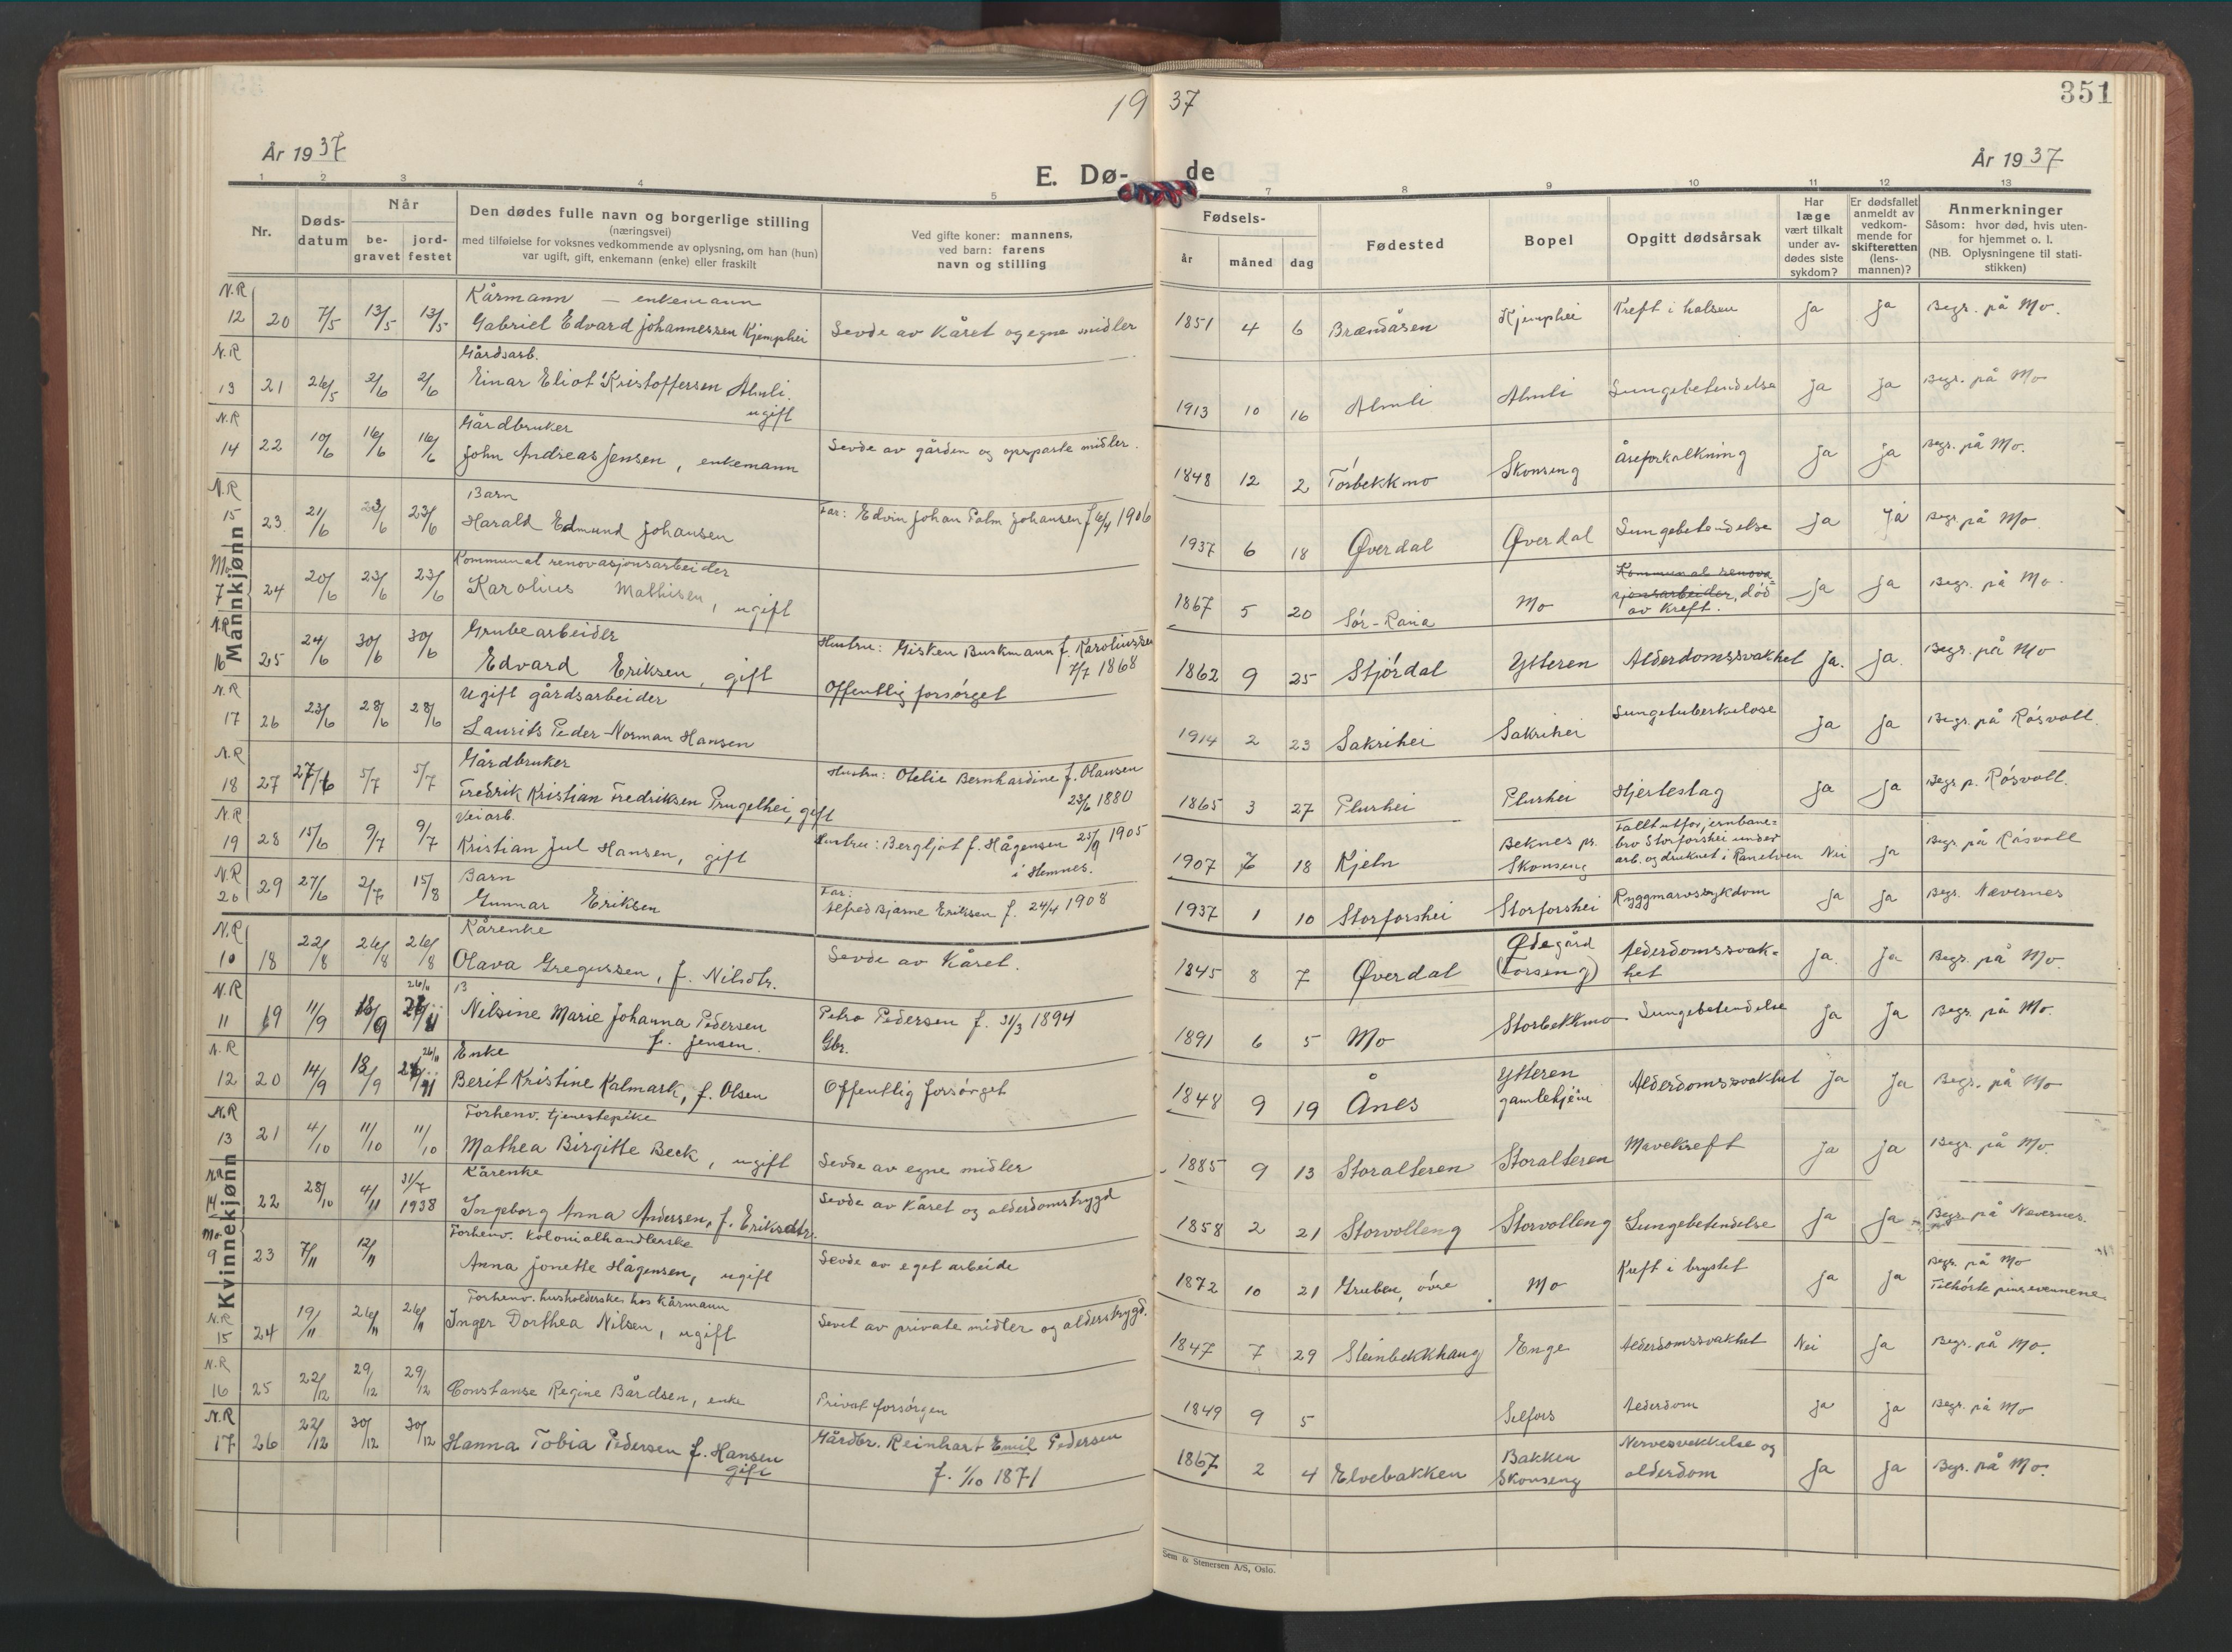 19 37
351
År 1937
År 1937
E. Dø-de
1 2 3 4 5 7 8 9 10 11 12 13
Nr.
Døds-datum
Når
be-gravet
jord-festet
Den dødes fulle navn og borgerlige stilling
(næringsvei)
med tilføielse for voksnes vedkommende av oplysning, om han (hun)
var ugift, gift, enkemann (enke) eller fraskilt
Ved gifte koner: mannens,
ved barn: farens
navn og stilling
Fødsels-
år måned dag
Fødested
Bopel
Opgitt dødsårsak
Har læge vært tilkalt under av-dødes siste sykdom?
Er dødsfallet anmeldt av vedkom-mende for skifteretten (lens-mannen)?
Anmerkninger
Såsom: hvor død, hvis uten-
for hjemmet o. l.
(NB. Oplysningene til stati-
stikken)
Mannkjønn
N.R Kårmann — enkemann
12 20 7/5 13/5 13/5 Gabriel Edvard Johannessen Kjemphei Levde av kåret og egne midler 1851 4 6 Brændåsen Kjemphei Kreft i halsen ja ja Begr. på Mo.
N.R Gårdsarb.
13 21 26/5 2/6 2/6 Einar Eliot Kristoffersen Almli. ugift 1913 10 16 Almli Almli Lungebetendelse ja ja Begr. på Mo
N.R Gårdbruker
14 22 10/6 16/6 16/6 John Andreas Jensen, enkemann Levde av gården og opsparte midler. 1848 12 2 Torbekkmo Skonseng Åreforkalkning ja ja Begr. på Mo.
N.R Barn
15 23 21/6 23/6 23/6 Harald Edmund Johansen Far: Edvin Johan Palm Johansen f. 6/4 1906 1937 6 18 Øverdal Øverdal Lungebetendelse ja ja Begr. på Mo.
Mo Kommunal renovasjonsarbeider
7 24 20/6 23/6 23/6 Karolius Mathisen, ugift 1867 5 20 Sør-Rana Mo Kommunal renova=
sjonsarbeider, død
av kreft. ja ja Begr. på Mo.
N.R Grubearbeider
16 25 24/6 30/6 30/6 Edvard Eriksen, gift Hustru: Gisken Buskmann f. Karoliussen
7/7 1868 1862 9 25 Stjørdal Ytteren Alderdomssvakhet ja. ja. Begr. på Mo
N.R Ugift gårdsarbeider Offentlig forsørget
17 26 23/6 28/6 28/6 Laurits Peder Norman Hansen 1914 2 23 Sakrihei Sakrihei Lungetuberkulose ja ja Begr. på Røsvoll.
N.R Gårdbruker
18 27 27/6 5/7 5/7 Fredrik Kristian Fredriksen Prugelhei, gift Hustru: Otelie Bernhardine f. Olausen
23/6 1880 1865 3 27 Plurhei Plurhei Hjerteslag ja ja Begr. p. Røsvoll.
N.R Veiarb.
19 28 15/6 9/7 9/7 Kristian Jul Hansen, gift Hustru: Bergljot f. Hågensen 25/9 1905
i Hemnes. 1907 7 18 Kjeln Beknes pr.
Skonseng Falt utfor jernbane=
bro Storforshei under
arb. og druknet i Ranelven Nei ja Begr. på Røsvoll
N.R Barn
20 29 27/6 2/7 15/8 Gunnar Eriksen Far:
Alfred Bjarne Eriksen f. 24/4 1908 1937 1 10 Storforshei Storforshei Ryggmarvssykdom ja ja Begr. Nævernes
Kvinnekjønn
N.R Kårenke
10 18 22/8 26/8 26/8 Olava Gregussen, f. Nilsdtr. Levde av kåret. 1845 8 7 Øverdal Ødegård
(Torseng) Alderdomssvak=
het ja. ja Begr. på Mo.
N.R 26/11
11 19 11/9 18/9 Nilsine Marie Johanna Pedersen
f. Jensen. Petro Pedersen f. 31/3 1894
Gbr. 1891 6 5 Mo Storbekkmo Lungebetendelse ja ja Begr. på Mo.
N.R 26/11 Enke
12 20 14/9 18/9 Berit Kristine Kalmark, f. Olsen Offentlig forsørget 1848 9 19 Ånes Ytteren
gamlehjem Alderdomssvakhet ja ja Begr. på Mo
N.R Forhenv. tjenestepike
13 21 4/10 11/10 11/10 Mathea Birgitte Beck, ugift Levde av egne midler 1885 9 13 Storalteren Storalteren Mavekreft ja ja Begr. på Mo.
N.R Kårenke
14 22 28/10 4/11 31/7 1938 Ingeborg Anna Andersen, f. Eriksdtr. Levde av kåret og alderdomstrygd 1858 2 21 Storvolleng Storvolleng Lungebetendelse ja ja Begr. på Nævernes.
Mo Forhenv. kolonialhandlerske
9 23 7/11 12/11 Anna Jonette Hågensen, ugift Levde av eget arbeide 1872 10 21 Gruben, øvre Mo Kreft i brystet ja ja Begr. på Mo
Tilhørte pinsevennene
N.R Forhenv. husholderske hos kårmann
15 24 19/11 26/11 26/11 Inger Dorthea Nilsen, ugift Levet av private midler og alderstrygd. 1847 7 29 Steinbekkhaug Enge Alderdomssvakhet Nei ja Begr. på Mo.
N.R
16 25 22/12 29/12 29/12 Constanse Regine Bårdsen, enke Privat forsørgen 1849 9 5 Selfors Alderdom ja ja Begr. på Mo
N.R
17 26 22/12 30/12 30/12 Hanna Tobia Pedersen f. Hansen
gift Gårdbr. Reinhart Emil Pedersen
f. 1/10 1871 1867 2 4 Elvebakken Bakken
Skonseng Nervesvekkelse og
alderdom ja ja Begr. på Mo.
Sem & Stenersen A/S, Oslo.